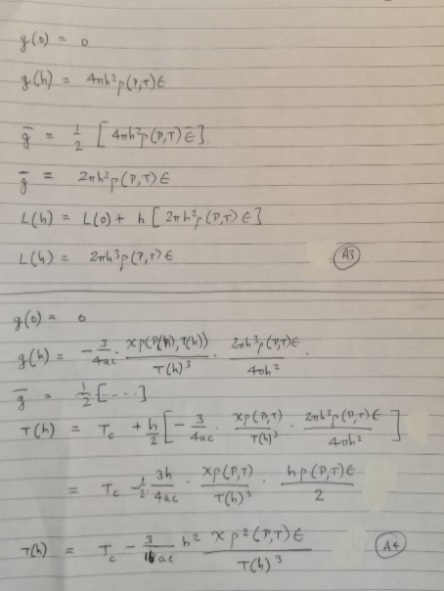 g(0) = 0
g(h) = 4πh²ρ(P,T)ϵ
ḡ = 1/2 [4πh²ρ(P,T)ϵ]
ḡ = 2πh²ρ(P,T)ϵ
L(h) = L(0) + h [2πh²ρ(P,T)ϵ]
L(h) = 2πh³ρ(P,T)ϵ (A3)
g(0) = 0
g(h) = -3/4ac · χρ(P(h),T(h))/T(h)³ · 2πh³ρ(P,T)ϵ/4πh² .
ḡ = 1/2 [.....]
T(h) = T_c + h/2 [-3/4ac · χρ(P,T)/T(h)³ · 2πh³ρ(P,T)ϵ/4πh²]
= T_c - 1/2 · 3h/4ac · χρ(P,T)/T(h)³ · hρ(P,T)ϵ/2
T(h) = T_c - 3/16ac h² χρ²(P,T)ϵ/T(h)³ (A4)